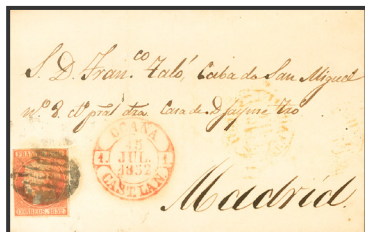 S. D. Fran.co Zaló, Caba de San Miguel
nº 8. Cto pral dra. Casa de D. Jayme
OCAÑA
JUL.
1852
1 1
CAST.LAN.
Madrid.